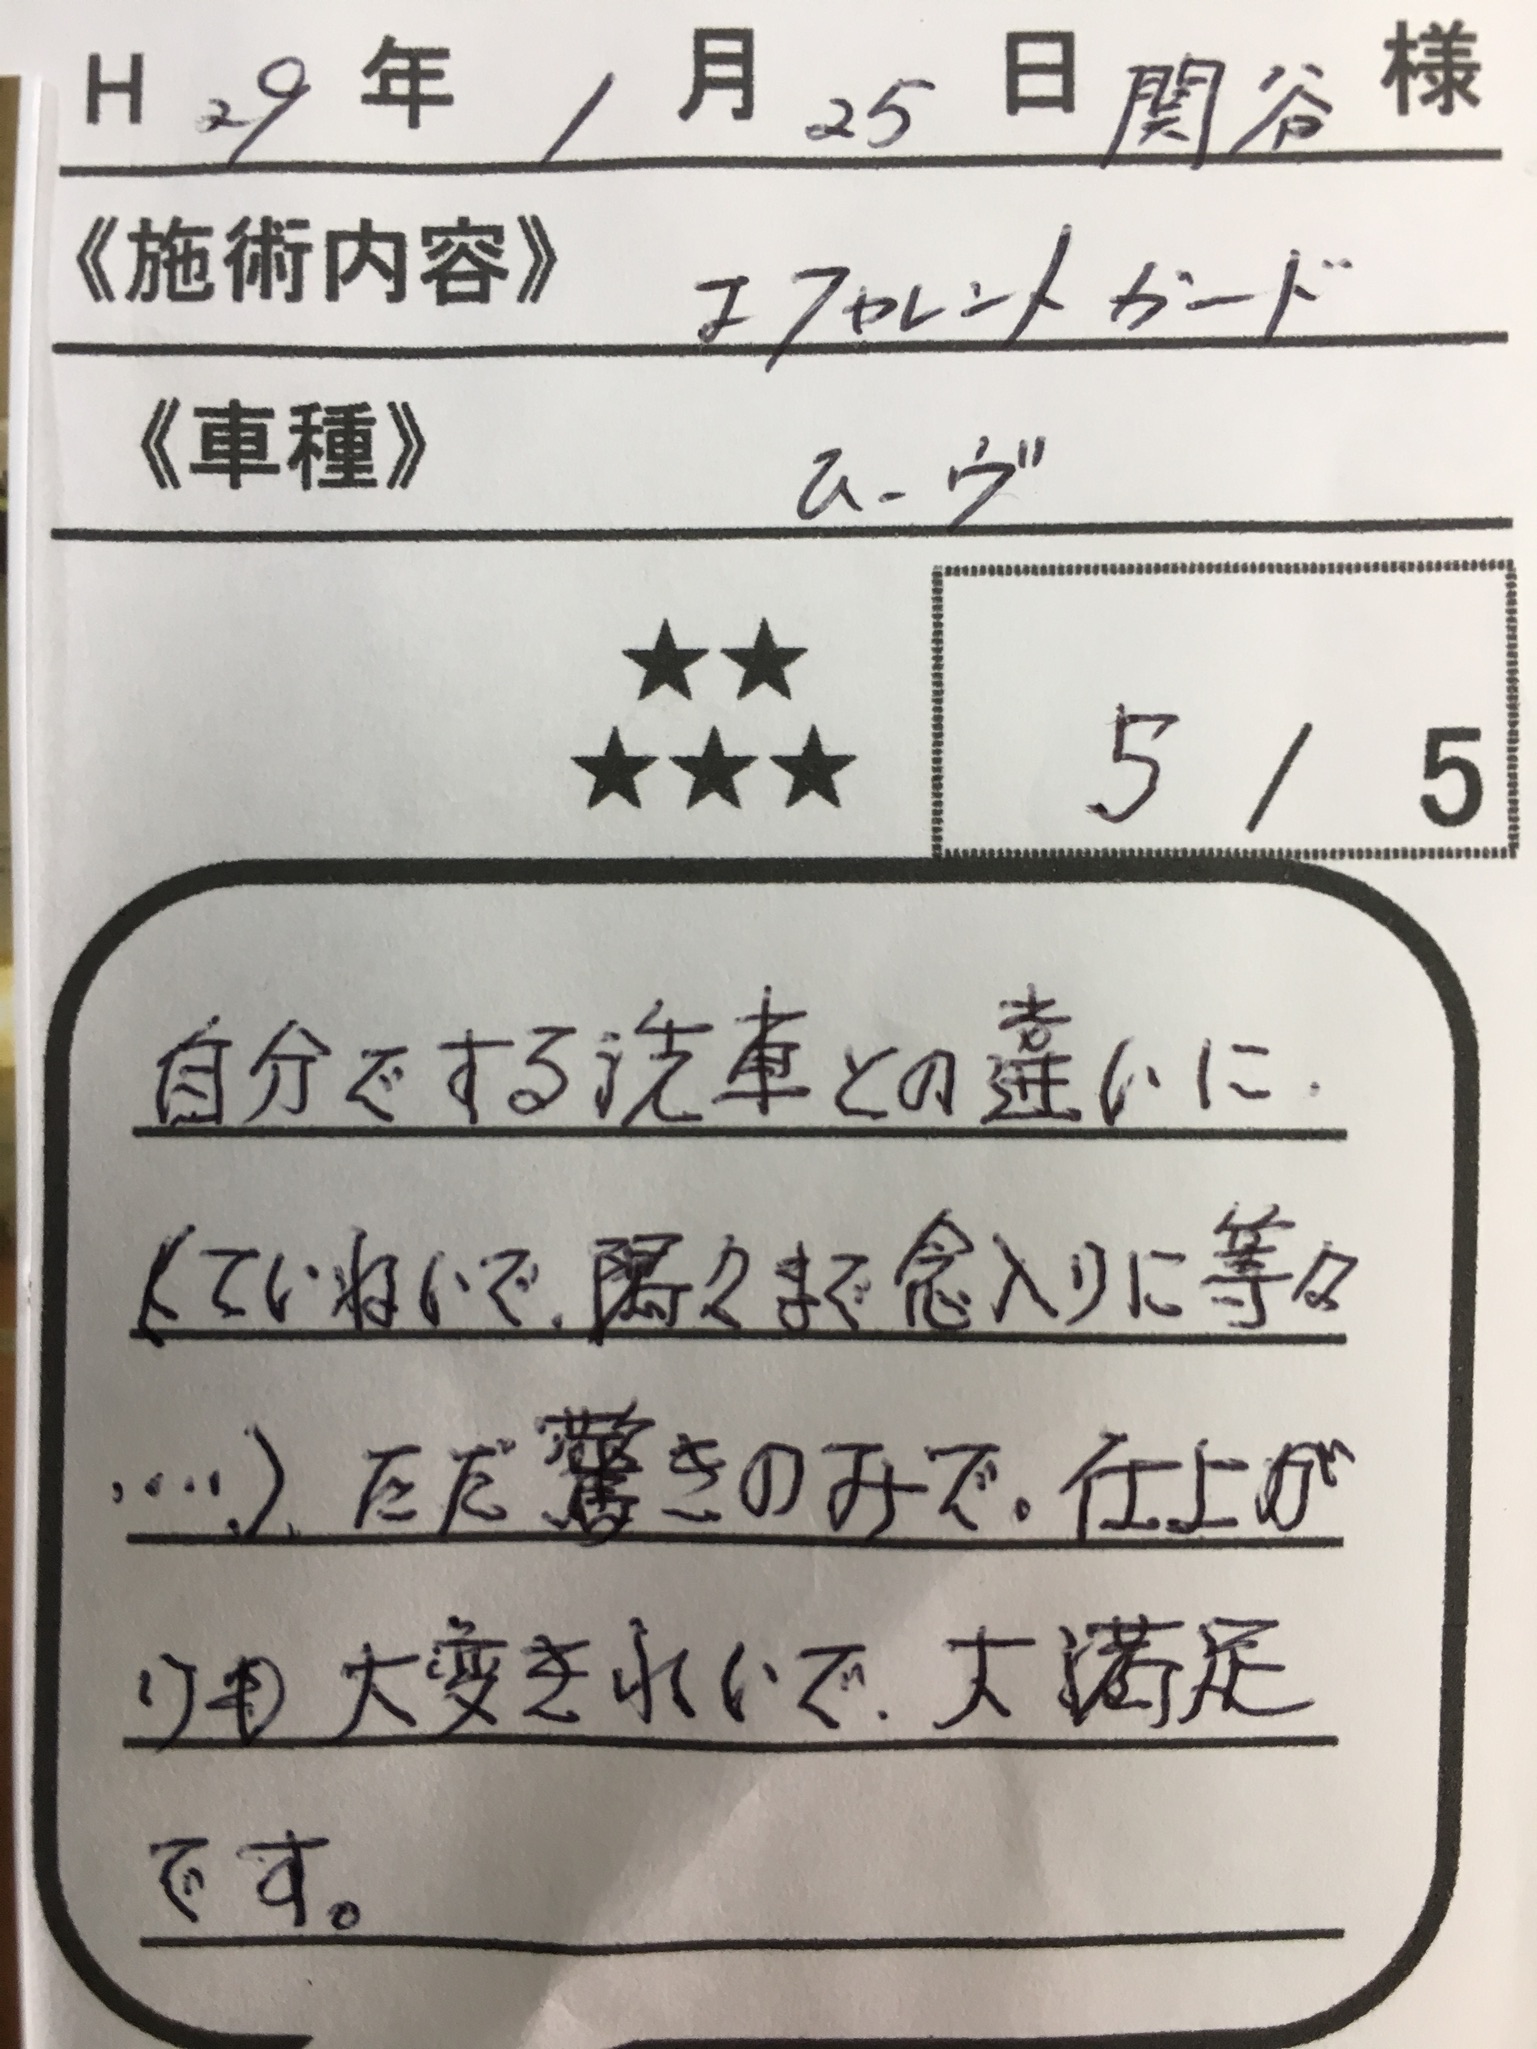 H 29 年 1 月 25 日 関谷 様
《施術内容》 エフャレントガード
《車種》 ムーヴ
★★
★★★ 5 / 5
自分でする洗車との違いに
(ていねいで、隅々まで念入りに等々
.....)、ただ驚きのみで。仕上が
りも大変きれいで、大満足
です。